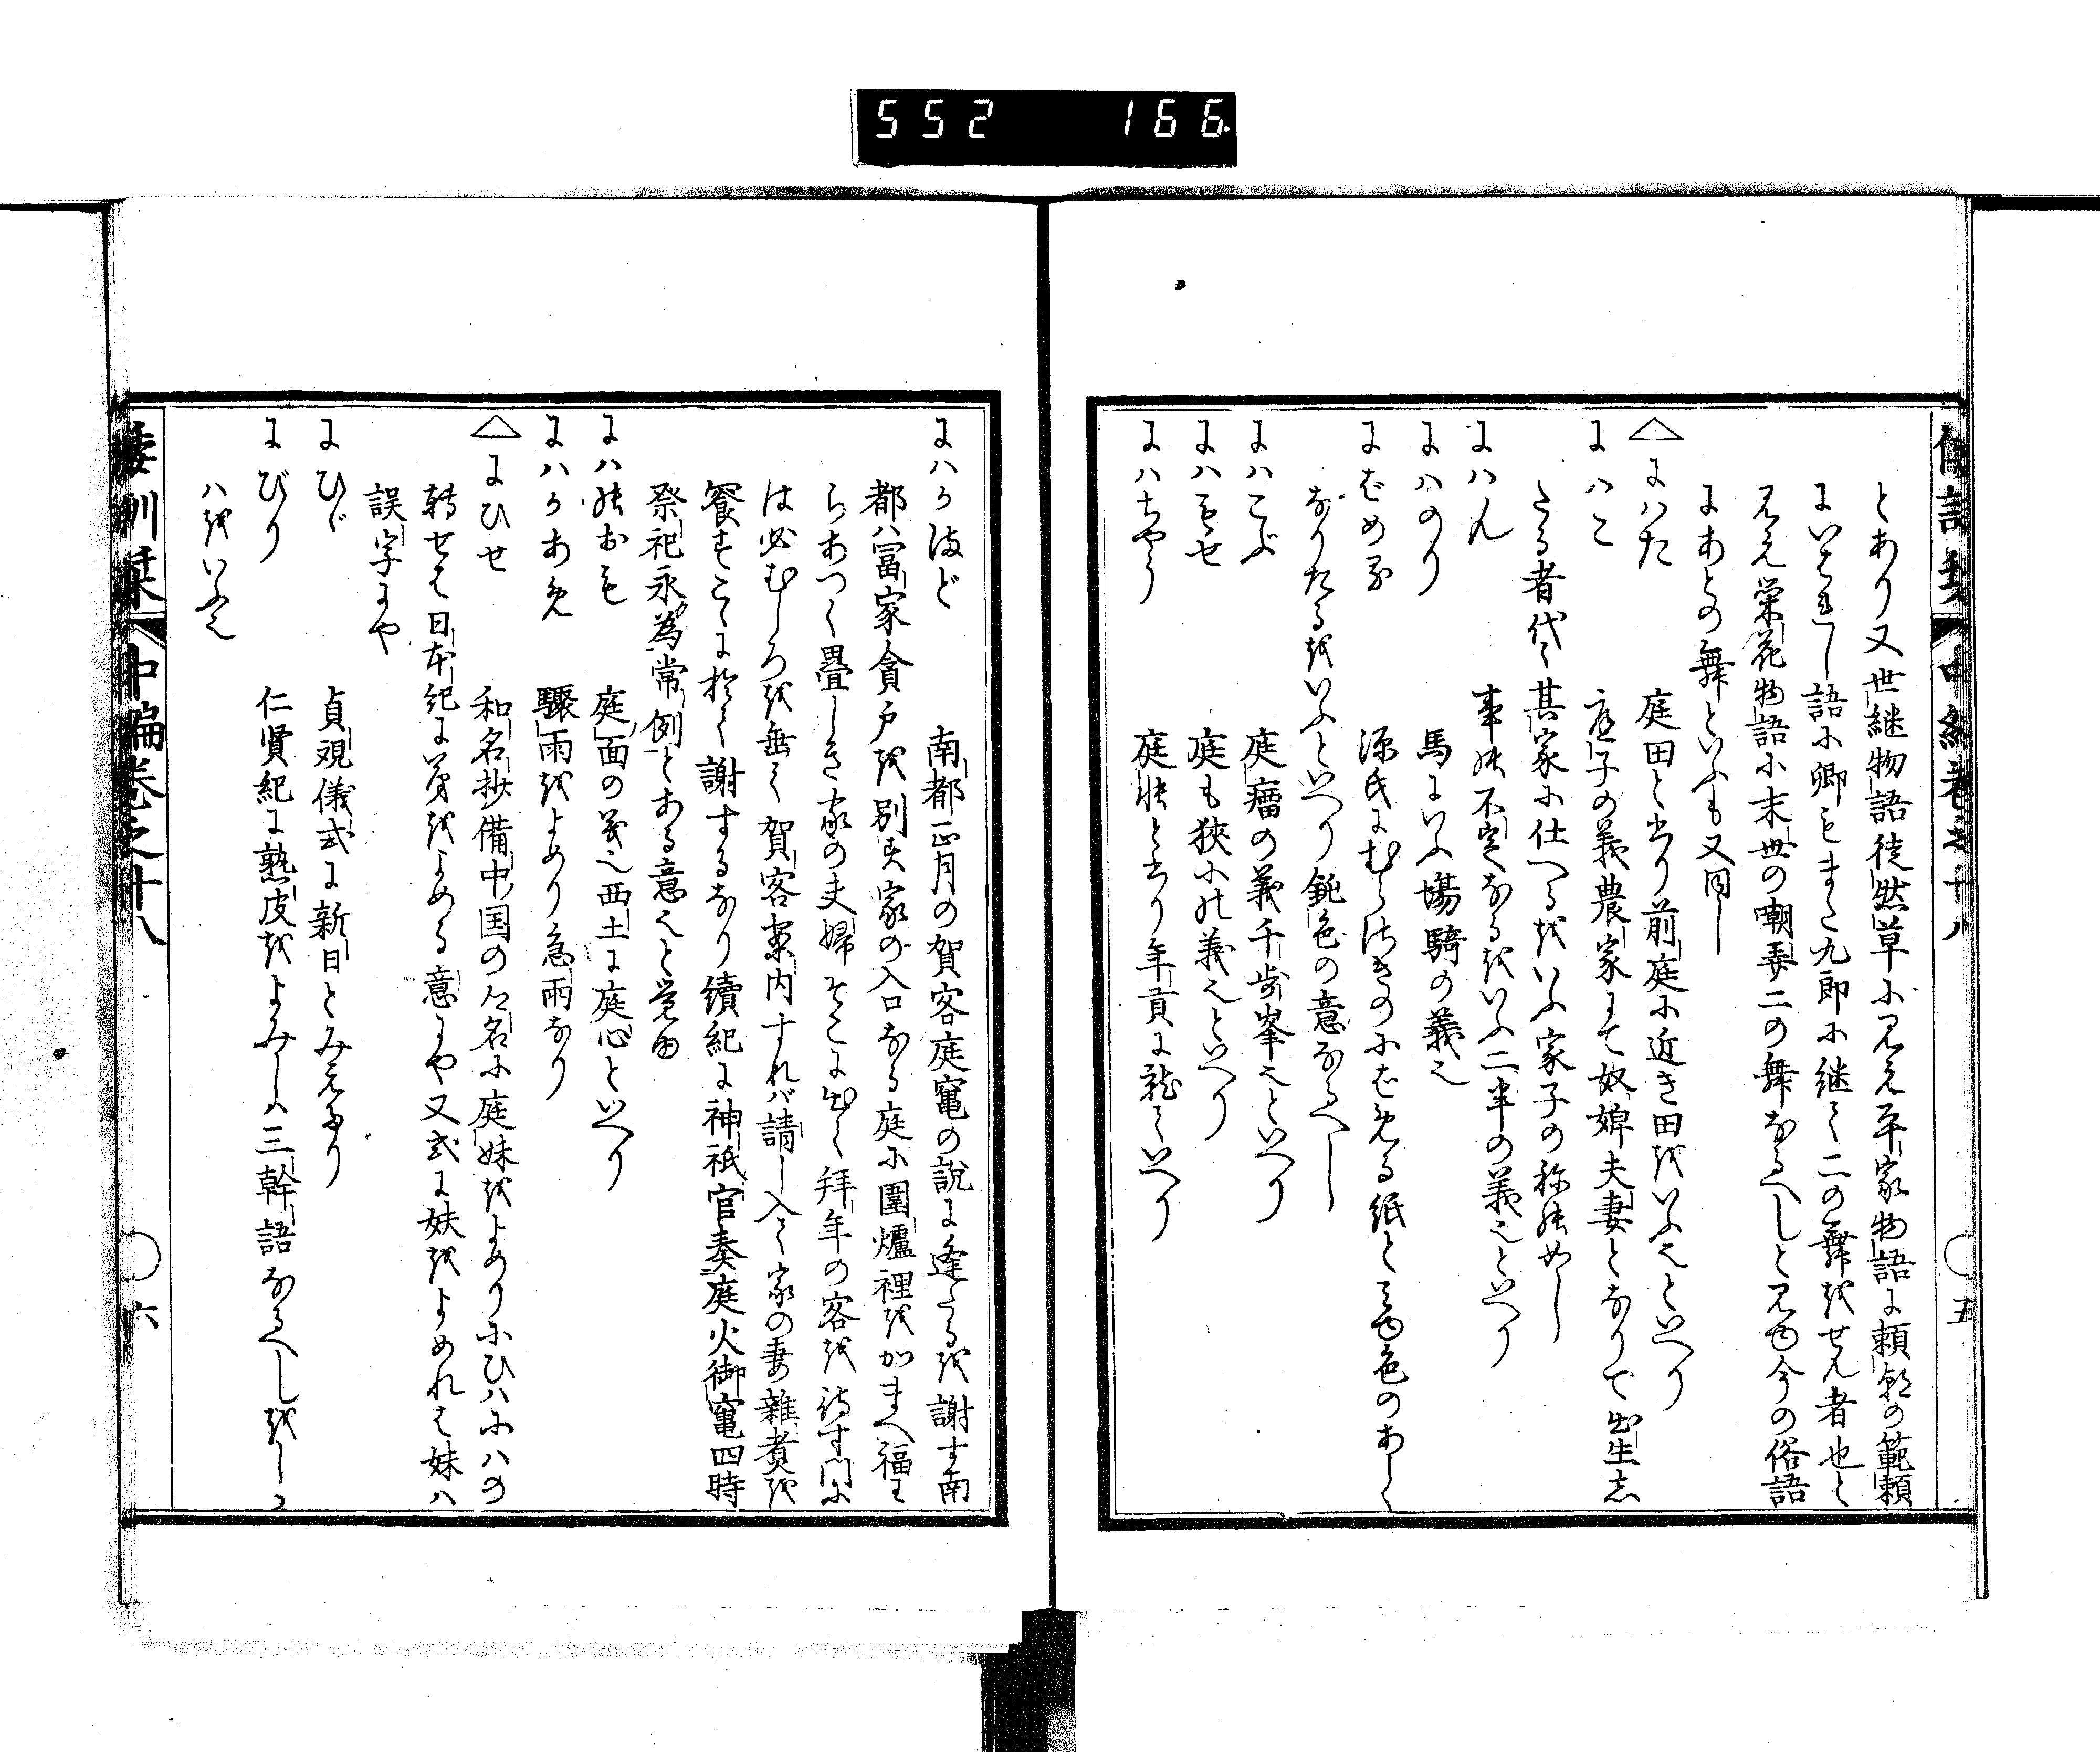 552 166
とあり又世継物語徒然草に見え平家物語に頼朝の範頼
にいはれし語に卿もまた九郎に継て二の舞をせん者也と
見え栄花物語に末世の嘲弄二の舞なるへしと見ゆ今の俗語
にあとの舞といふも又同し
△にハた 庭田と書り前庭に近き田をいふ也といへり
にハこ 庭子の義農家にて奴婢夫妻となりて出生し
たる者代々其家に仕へるをいふ家子の称のめし
にハん 事の不定なるをいふ二半の義也といへり
にハのり 馬にいふ場騎の義也
にばめる 源氏にむらさきのにばめる紙と見ゆ色のあしく
なりたるをいふといへり鈍色の意なるへし
にハこぶ 庭瘤の義千歩峯也といへり
にハもせ 庭も狭にの義也といへり
にハちやう 庭帳と書り年貢に就ていへり
五
にハかまど 南都正月の賀客庭竈の説に逢たるを謝す南
都ハ冨家貪戸を別す家の入口なる庭に圍爐裡をかまへ福わ
らあつく畳しき家の夫婦そこに出て拜年の客を待す門に
は必むしろを垂て賀客案内すれバ請し入て家の妻雜煮を
餐すこゝに於て謝するなり續紀に神祇官奏庭火御竈四時
祭祀永為常例とある意也と覚ゆ
にハのおも 庭面の義也西土に庭心といへり
にハかあめ 驟雨をよめり急雨なり
△にひせ 和名抄備中国の々名に庭妹をよめりにひハにハの
轉せる日本紀に男をよめる意にや又式に妋をよめれは妹ハ
誤字にや
にひゞ 貞観儀式に新日とみえたり
にびり 仁賢紀に熟皮をよみしハ三幹語なるへしをしか
ハをいふ也
倭訓栞 中編巻之十八 六